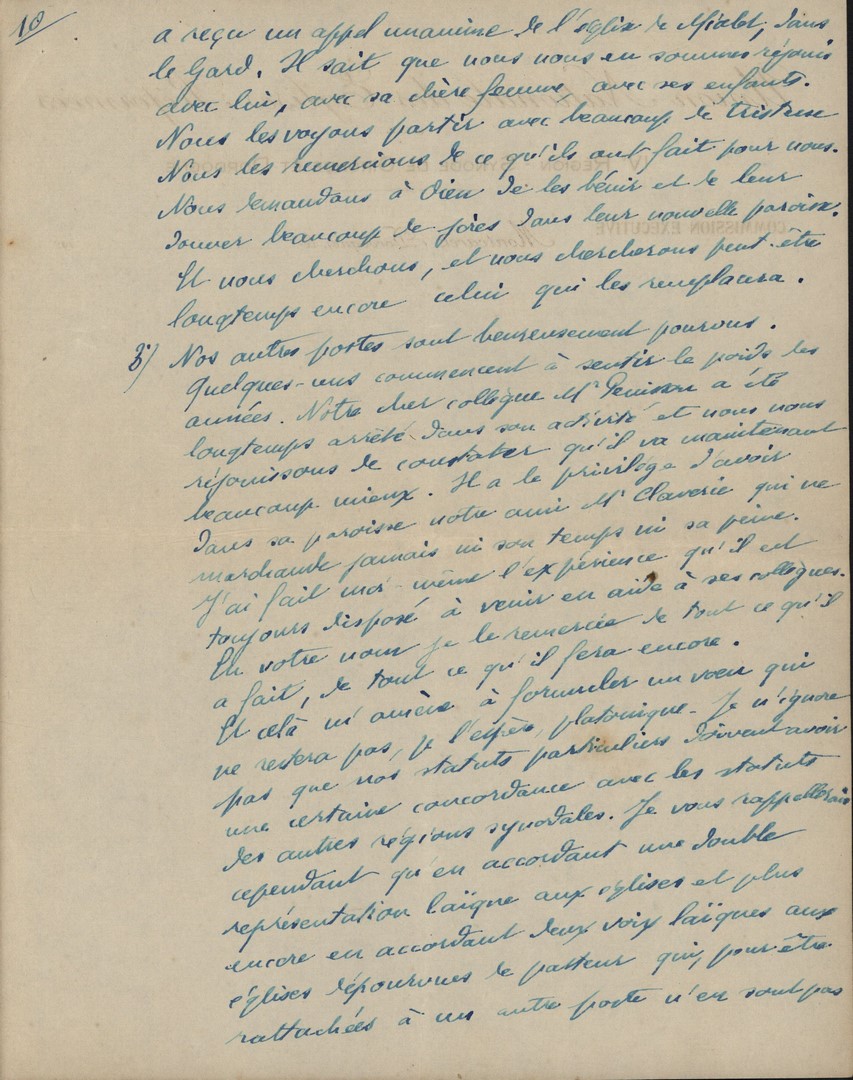 10
a reçu un appel unanime de l'église de Mialet, dans
le Gard. Il sait que nous nous en sommes réjouis
avec lui, avec sa chère femme, avec ses enfants.
Nous les voyons partir avec beaucoup de tristesse
Nous les remercions de ce qu'ils ont fait pour nous.
Nous demandons à Dieu de les bénir et de leur
donner beaucoup de joies dans leur nouvelle paroisse.
Et nous cherchons, et nous chercherons peut-être
longtemps encore celui qui les remplacera.
3°) Nos autres postes sont heureusement pourvus.
Quelques-uns commencent à sentir le poids des
années. Notre cher collègue Mr a été
longtemps arrêté dans son activité et nous nous
réjouissons de constater qu'il va maintenant
beaucoup mieux. Il a le privilège d'avoir
dans sa paroisse notre ami Mr Claverie qui ne
marchande jamais ni son temps ni sa peine.
J'ai fait moi-même l'expérience qu'il est
toujours disposé à venir en aide à ses collègues.
En votre nom je le remercie de tout ce qu'il
a fait, de tout ce qu'il fera encore.
Et celà m'amène à formuler un voeu qui
ne restera pas, je l'espère, platonique - Je n'ignore
pas que nos statuts particuliers doivent avoir
une certaine concordance avec les statuts
des autres régions synodales. Je vous rappellerais
cependant qu'en accordant une double
représentation laïque aux églises et plus
encore en accordant deux voix laïques aux
églises dépourvues de pasteur qui, pour être
rattachées à un autre poste n'en sont pas
RÉGION
COMMISSION EXECUTIVE